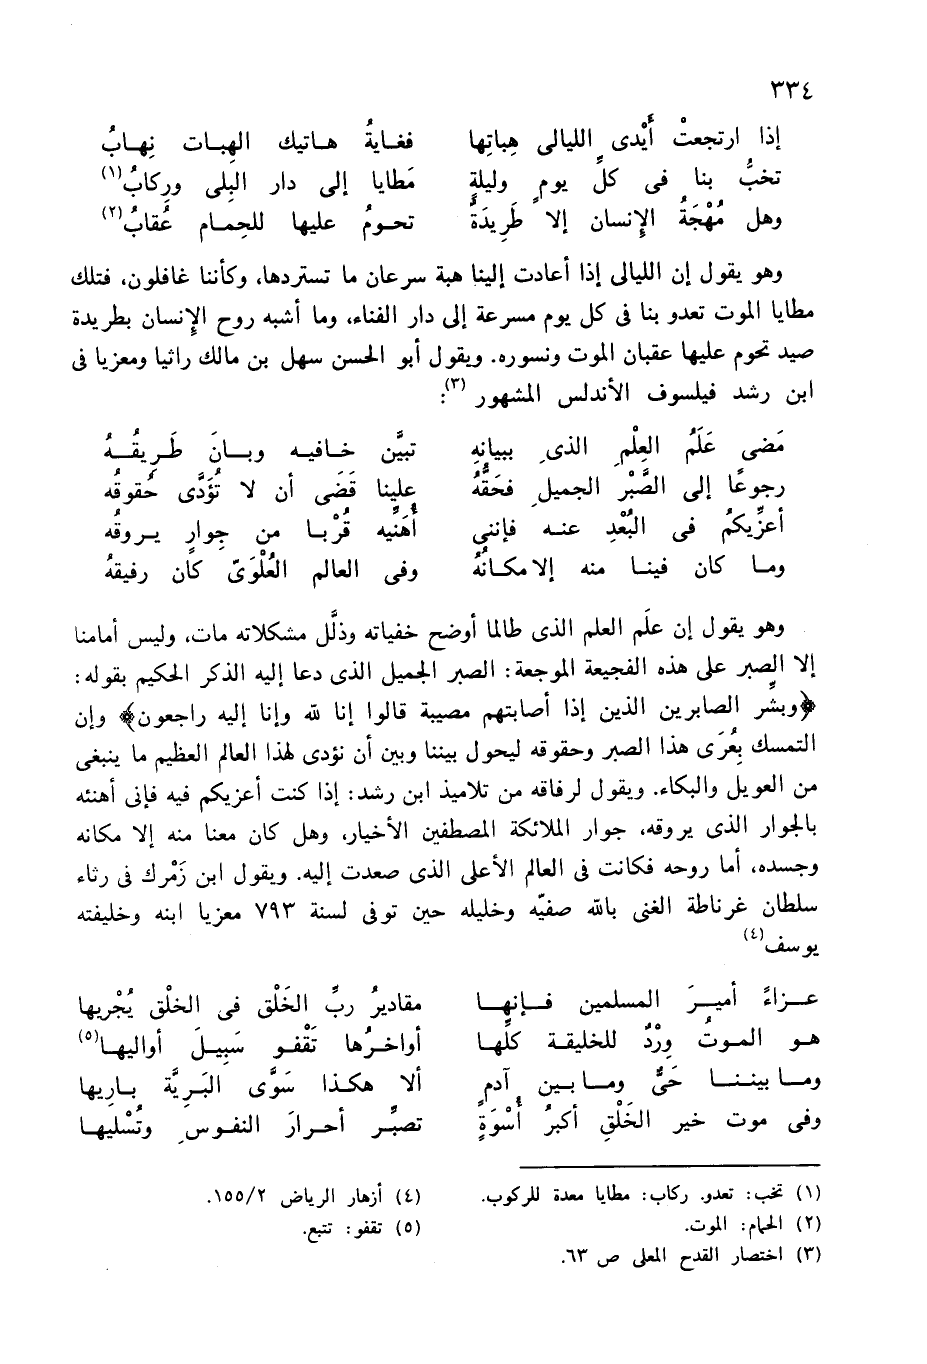 ٣٣٤
إذا ارتجعتْ أَيْدى الليالى هِباتِها فغايةُ هاتيك الهِبات نِهابُ
تخبُّ بنا فى كلِّ يومٍ وليلةٍ مَطايا إلى دار البِلى ورِكابُ(١)
وهل مُهْجَةُ الإنسان إلا طَرِيدَةٌ تحومُ عليها للحِمام عُقابُ(٢)
وهو يقول إن الليالى إذا أعادت إلينا هبة سرعان ما تستردها، وكأننا غافلون، فتلك
مطايا الموت تعدو بنا فى كل يوم مسرعة إلى دار الفناء، وما أشبه روح الإنسان بطريدة
صيد تحوم عليها عقبان الموت ونسوره. ويقول أبو الحسن سهل بن مالك راثيا ومعزيا فى
ابن رشد فيلسوف الأندلس المشهور (٣):
مَضى عَلَمُ العِلْمِ الذى ببيانِهِ تبيَّن خافيه وبانَ طَرِيقُهُ
رجوعًا إلى الصَّبْر الجميلِ فحَقُّهُ علينا قَضَى أن لا تُؤَدَّى حُقوقُه
أعزِّيكمُ فى البُعْدِ عنه فإننى أُهَنِّيه قُرْبا من جِوارٍ يروقُه
وما كان فينا منه إلا مكانُهُ وفى العالم العُلْوىّ كان رفيقهُ
وهو يقول إن علَم العلم الذى طالما أوضح خفياته وذلَّل مشكلاته مات، وليس أمامنا
إلا الصبر على هذه الفجيعة الموجعة: الصبر الجميل الذى دعا إليه الذكر الحكيم بقوله:
﴿وبشِّر الصابرين الذين إذا أصابتهم مصيبة قالوا إنا لله وإنا إليه راجعون﴾ وإن
التمسك بعُرَى هذا الصبر وحقوقه ليحول بيننا وبين أن نؤدى لهذا العالم العظيم ما ينبغى
من العويل والبكاء. ويقول لرفاقه من تلاميذ ابن رشد: إذا كنت أعزيكم فيه فإنى أهنئه
بالجوار الذى يروقه، جوار الملائكة المصطفين الأخيار، وهل كان معنا منه إلا مكانه
وجسده، أما روحه فكانت فى العالم الأعلى الذى صعدت إليه. ويقول ابن زَمْرك فى رثاء
سلطان غرناطة الغنى بالله صفيّه وخليله حين توفى لسنة ٧٩٣ معزيا ابنه وخليفته
يوسف(٤)
عزاءً أميرَ المسلمين فإنها مقاديرُ ربِّ الخَلْق فى الخلْق يُجْريها
هو الموتُ وِرْدٌ للخليقة كلِّها أواخرُها تَقْفو سَبِيلَ أواليها(٥)
وما بيننا حَىٌّ وما بين آدمٍ ألا هكذا سَوَّى البَرِيَّة باريها
وفى موت خير الخَلْقِ أكبرُ أُسْوَةٍ تصبِّر أحرارَ النفوسِ وتُسْليها
(١) تخب: تعدو. ركاب: مطايا معدة للركوب.
(٢) الحمام: الموت.
(٣) اختصار القدح المعلى ص ٦٣.
(٤) أزهار الرياض ١٥٥/٢.
(٥) تقفو: تتبع.